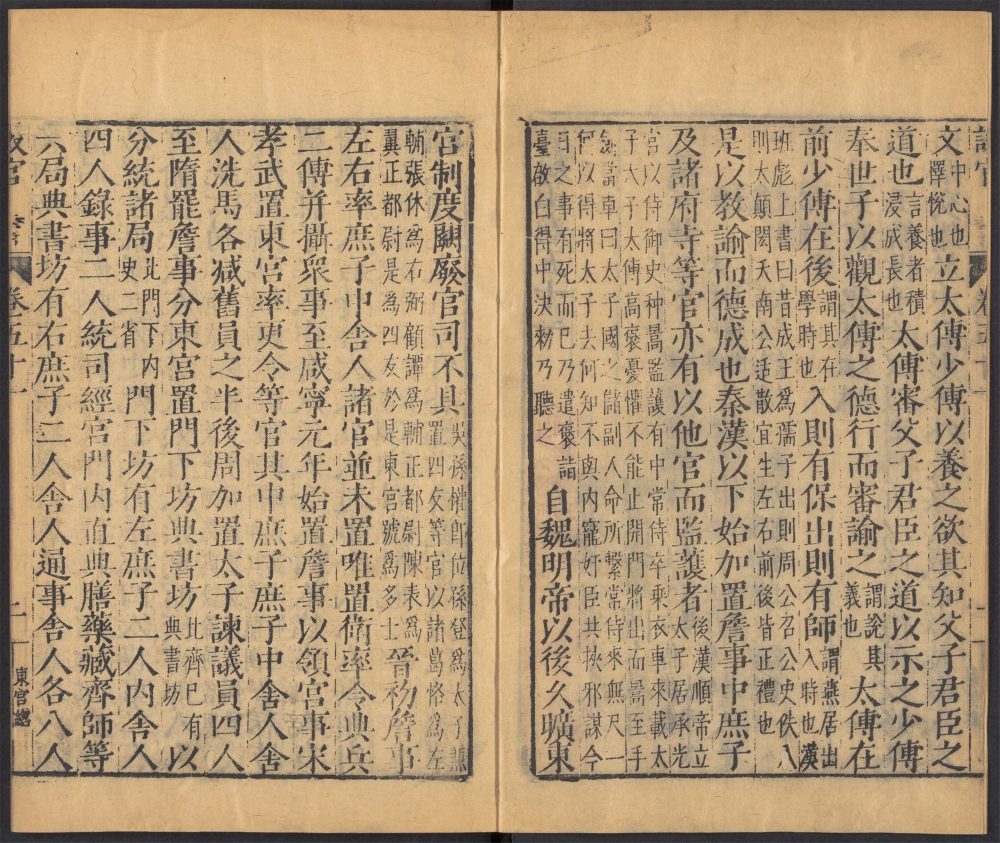 卷五
文中心也
懌悅也立太傅少傅以養之欲其知父子君臣之
道也言養者積
浸成長也太傅審父子君臣之道以示之少傅
奉世子以觀太傅之德行而審諭之謂說其
義也太傅在
前少傅在後謂其在
學時也入則有保出則有師謂燕居出
入時也漢
班彪上書曰昔成王爲孺子出則周公召公史佚入
則太顛閎夭南公适散宜生左右前後皆正禮也
是以教諭而德成也秦漢以下始加置詹事中庶子
及諸府寺等官亦有以他官而監護者後漢順帝立
太子居承光
宮以侍御史种暠監護有中常侍卒乘衣車來載太
子太子太傅高褒憂懼不能止開門將出而暠至手
劍當車曰太子國之儲副人命所繫常侍來無尺一
何以得將太子去何知不與內寵奸臣共挾邪謀今
日之事有死而已乃遣褒詣
臺啟白得中決勑乃聽之自魏明帝以後久曠東
宮制度闕廢官司不具吳孫權卽位孫登爲太子
置四友等官以諸葛恪爲左
輔張休爲右弼顧譚爲輔正都尉陳表爲
翼正都尉是爲四友於是東宮號爲多士晉初詹事
左右率庶子中舍人諸官並未置唯置衛率令典兵
二傅并攝衆事至咸寧元年始置詹事以領宮事宋
孝武置東宮率更令等官其中庶子庶子中舍人舍
人洗馬各減舊員之半後周加置太子諫議員四人
至隋罷詹事分東宮置門下坊典書坊北齊已有
典書坊以
分統諸局此門下內
史二省門下坊有左庶子二人內舍人
四人錄事二人統司經宮門內直典膳藥藏齊師等
六局典書坊有右庶子二人舍人通事舍人各八人
卷五十一
二
東宮總